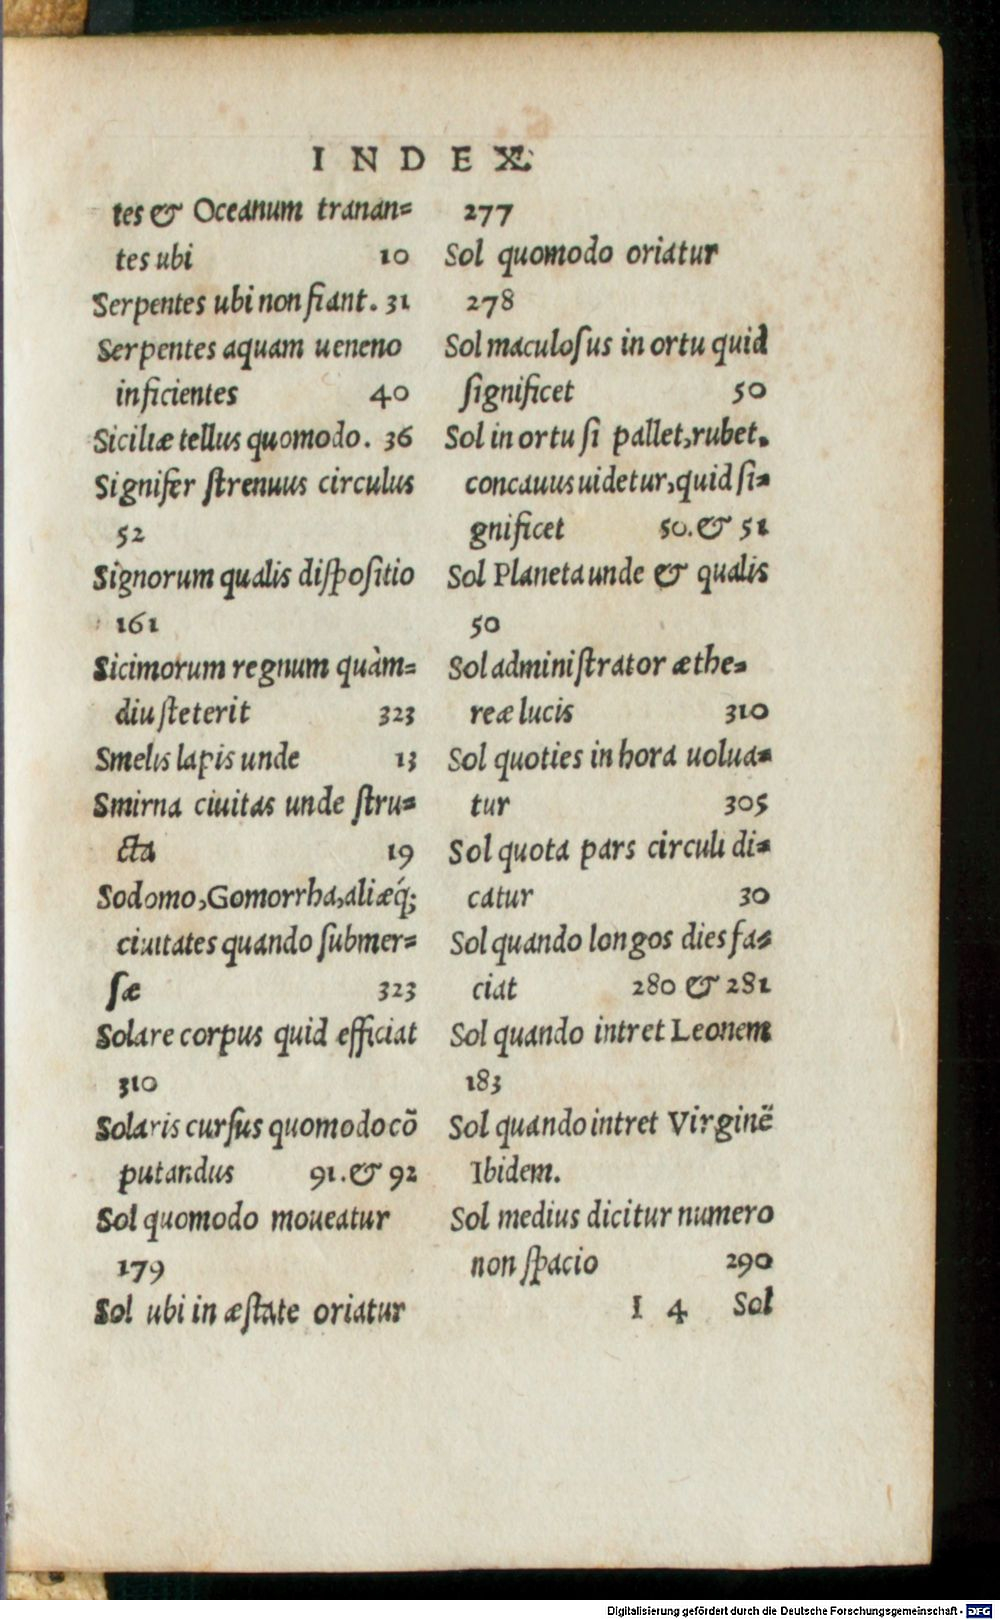 INDEX.
tes & Oceanum tranan=
tes ubi 10
Serpentes ubi non fiant. 31
Serpentes aquam ueneno
inficientes 40
Siciliæ tellus quomodo. 36
Signifer ſtrenuus circulus
52
Signorum qualis diſpoſitio
161
Sicimorum regnum quàm=
diu ſteterit 323
Smelis lapis unde 13
Smirna ciuitas unde ſtru=
cta 19
Sodomo, Gomorrha, aliæq́;
ciuitates quando ſubmer=
ſæ 323
Solare corpus quid efficiat
310
Solaris curſus quomodo cõ
putandus 91. & 92
Sol quomodo moueatur
179
Sol ubi in æſtate oriatur
277
Sol quomodo oriatur
278
Sol maculoſus in ortu quid
ſignificet 50
Sol in ortu ſi pallet, rubet.
concauus uidetur, quid ſi=
gnificet 50. & 51
Sol Planeta unde & qualis
50
Sol adminiſtrator æthe=
reæ lucis 310
Sol quoties in hora uolua=
tur 305
Sol quota pars circuli di=
catur 30
Sol quando longos dies fa=
ciat 280 & 281
Sol quando intret Leonem
183
Sol quando intret Virginẽ
Ibidem.
Sol medius dicitur numero
non ſpacio 290
I 4 Sol
Digitalisierung gefördert durch die Deutsche Forschungsgemeinschaft - DFG